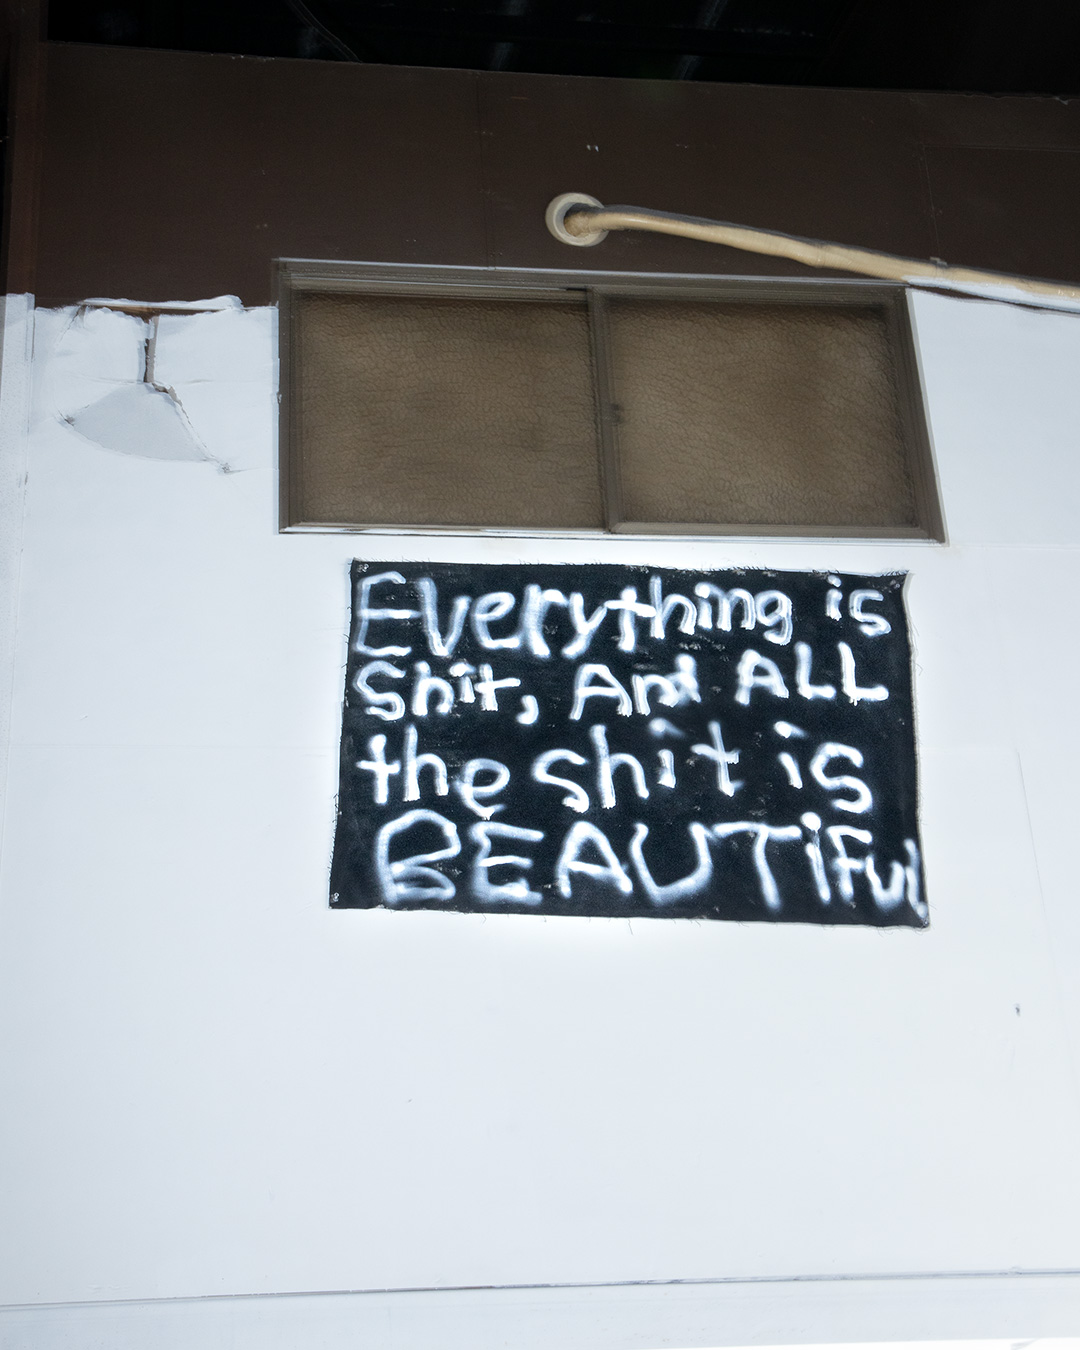 Everything is
Shit, And ALL
the shit is
BEAUTiFul